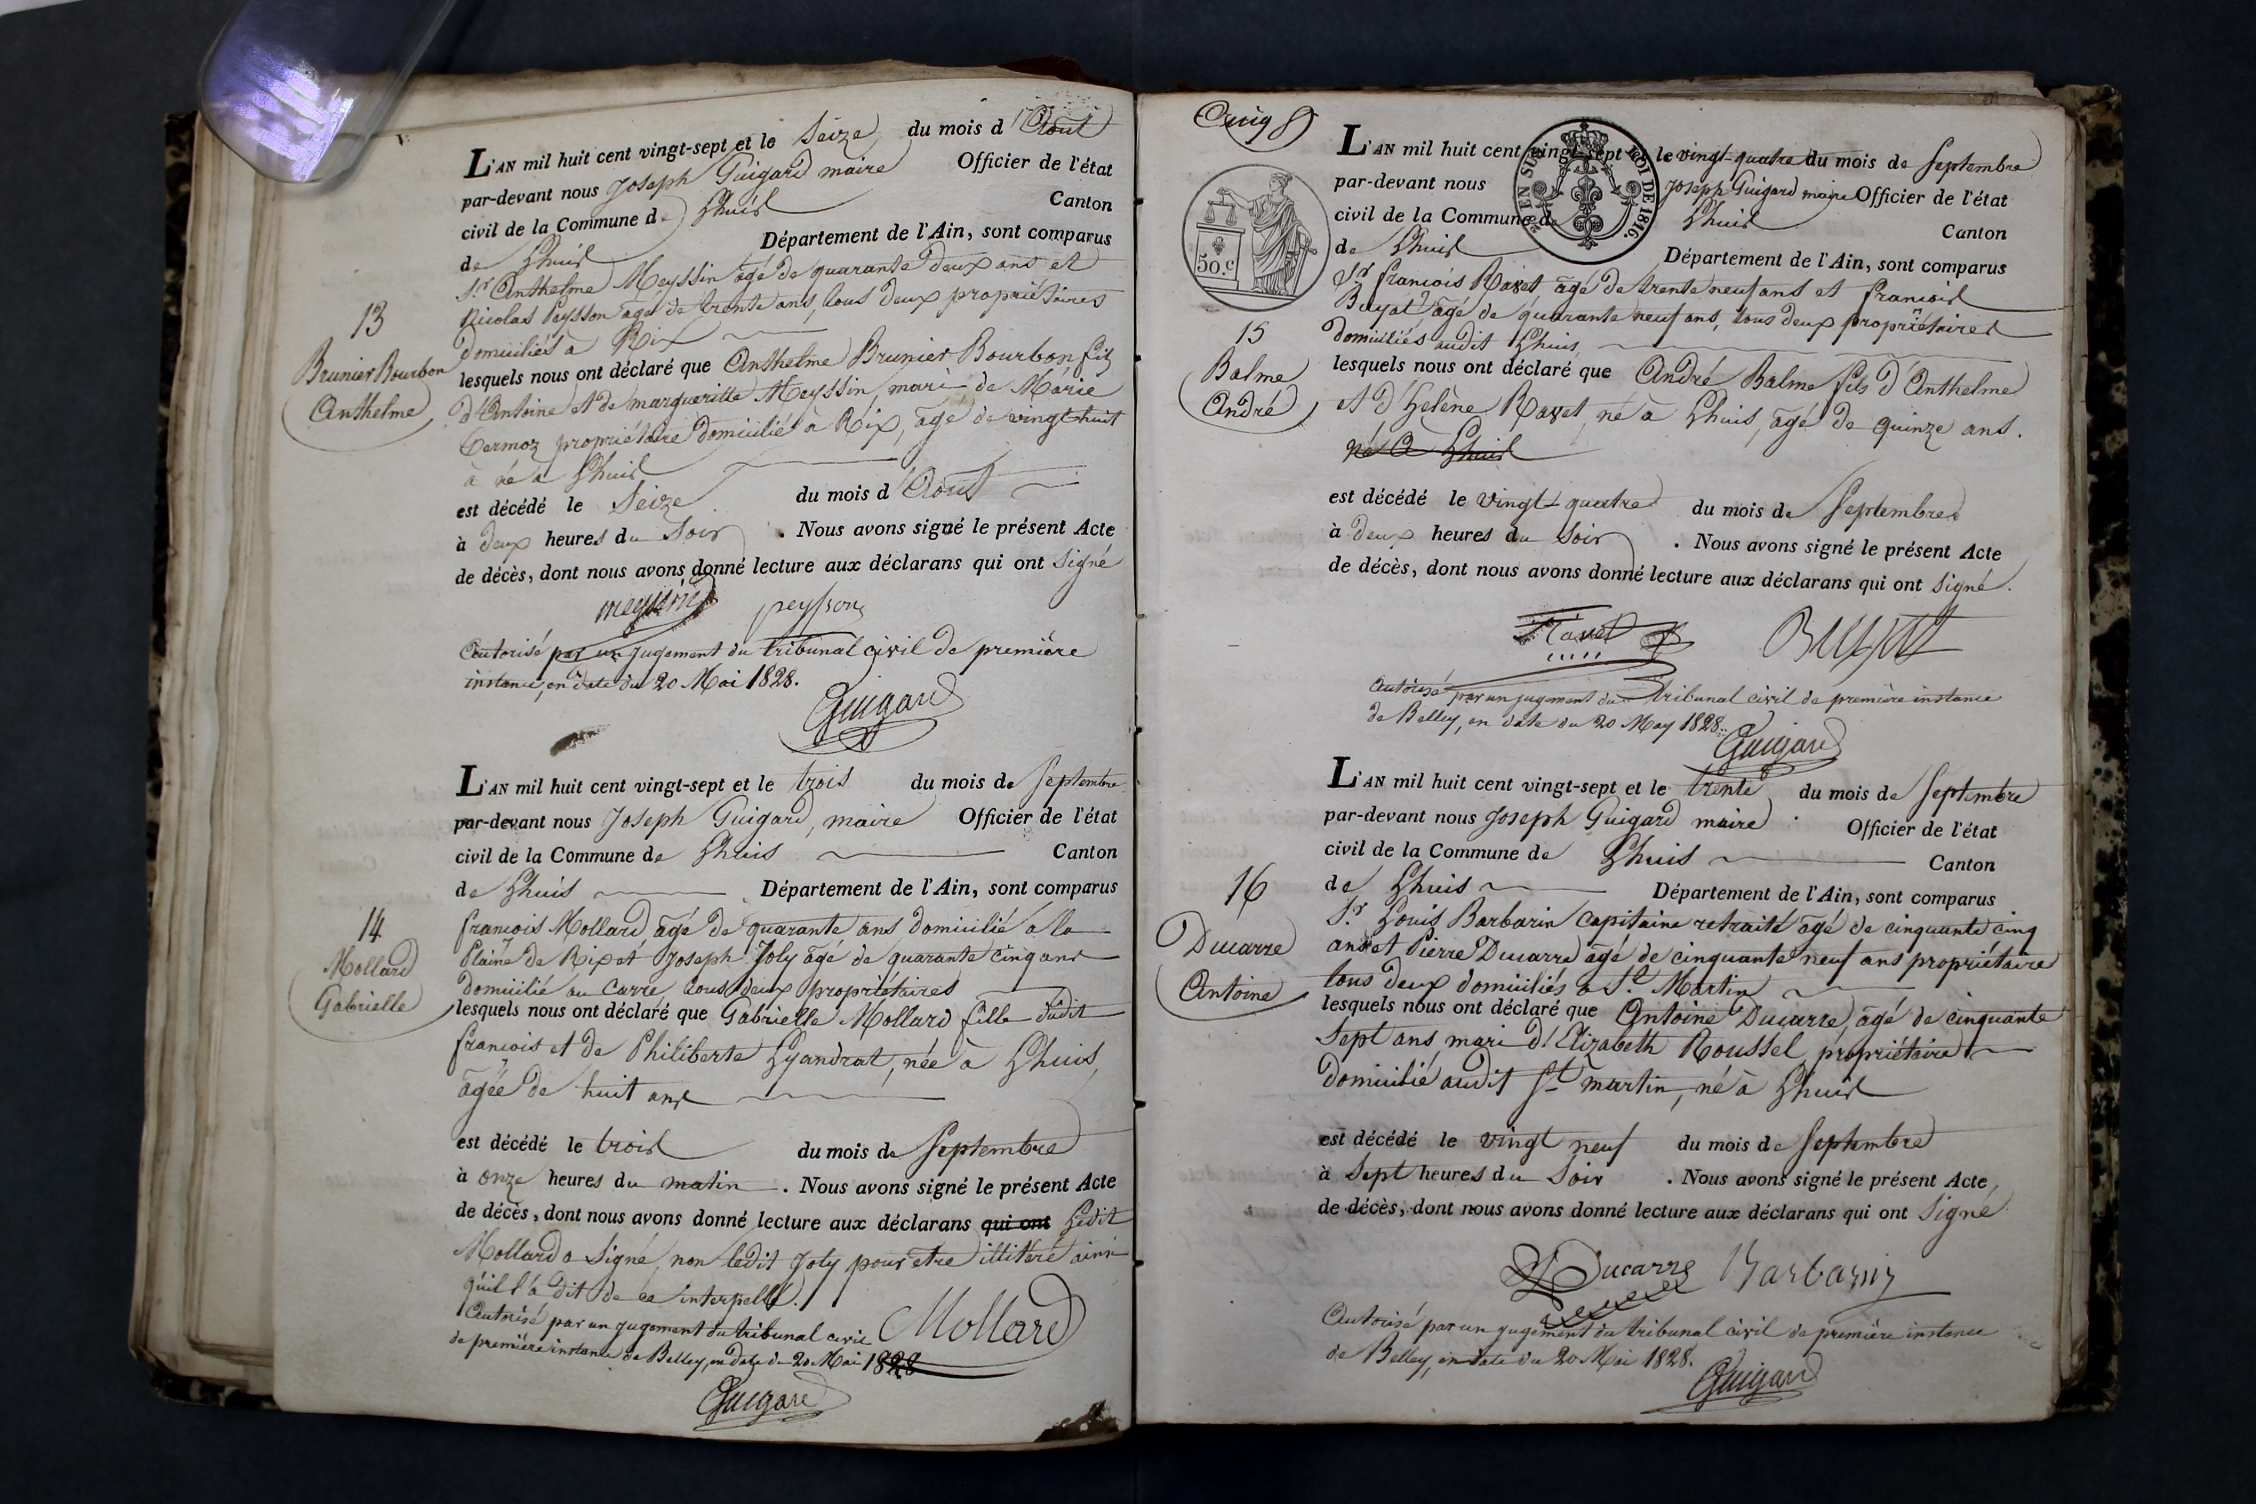 L'AN mil huit cent vingt-sept et le Seize du mois d'Aout
par-devant nous Joseph Guigard maire Officier de l'état
civil de la Commune de Lhuis Canton
de Lhuis Département de l'Ain, sont comparus
Sr. Anthelme Meyssin âgé de quarante deux ans et
Nicolas Peysson âgé de trente ans, tous deux propriétaires
domiciliés à Rix
13
Brunier Bourbon
Anthelme
lesquels nous ont déclaré que Anthelme Brunier Bourbon fils
d'Antoine et de marguerille Meyssin, mari de Marie
Cermoz propriétaire domicilié à Rix, âgé de vingt huit
à né à Lhuis
est décédé le Seize du mois d'Aout
à deux heures du Soir. Nous avons signé le présent Acte
de décès, dont nous avons donné lecture aux déclarans qui ont Signé
peysson
Autorisé par un jugement du tribunal civil de première
instance, en date du 20 Mai 1828.
Guigard
L'AN mil huit cent vingt-sept et le trois du mois de Septembre
par-devant nous Joseph Guigard, maire Officier de l'état
civil de la Commune de Lhuis Canton
de Lhuis Département de l'Ain, sont comparus
14
Mollard
Gabrielle
francois Mollard âgé de quarante ans domicilié à la
Plaine de Rix et Joseph Joly âgé de quarante cinq ans
domicilié au Carre tous deux propriétaires
lesquels nous ont déclaré que Gabrielle Mollard fille dudit
francois et de Philiberte Lyandrat, née à Lhuis,
âgée de huit ans
est décédé le trois du mois de Septembre
à onze heures du matin. Nous avons signé le présent Acte
de décès, dont nous avons donné lecture aux déclarans qui ont Ledit
Mollard a Signé, non ledit Joly pour etre illitéré ainsi
qu'il l'a dit de ce interpellé.
Autorisé par un jugement du tribunal civil
de première instance de Belley, en date du 20 Mai 1828
Mollard
Guigard
Cinq
L'AN mil huit cent vingt-sept et le vingt-quatre du mois de Septembre
par-devant nous Joseph Guigard maire Officier de l'état
civil de la Commune de Lhuis Canton
de Lhuis Département de l'Ain, sont comparus
EN SUS LOI DE 1816.
50.c
Sr. francois Ravet âgé de trente neuf ans et francois
Buyat âgé de quarante neuf ans, tous deux propriétaires
domiciliés audit Lhuis
15
Balme
André
lesquels nous ont déclaré que André Balme fils d'Anthelme
et d'Helène Ravet, né à Lhuis, âgé de quinze ans.
né à Lhuis
est décédé le vingt-quatre du mois de Septembre
à deux heures du Soir. Nous avons signé le présent Acte
de décès, dont nous avons donné lecture aux déclarans qui ont Signé.
Ravet
Autorisé par un jugement du tribunal civil de première instance
de Belley, en date du 20 May 1828.
Guigard
L'AN mil huit cent vingt-sept et le trente du mois de Septembre
par-devant nous Joseph Guigard maire Officier de l'état
civil de la Commune de Lhuis Canton
de Lhuis Département de l'Ain, sont comparus
16
Ducarre
Antoine
Sr. Louis Barbarin Capitaine retraité âgé de cinquante cinq
ans et Pierre Ducarre âgé de cinquante neuf ans propriétaire
tous deux domiciliés à St. Martin
lesquels nous ont déclaré que Antoine Ducarre, âgé de cinquante
Sept ans mari d'Elizabeth Roussel, propriétaire
domicilié audit St martin, né à Lhuis
est décédé le vingt neuf du mois de Septembre
à Sept heures du Soir. Nous avons signé le présent Acte
de décès, dont nous avons donné lecture aux déclarans qui ont Signé
Ducarre Barbarin
Autorisé par un jugement du tribunal civil de première instance
de Belley, en date du 20 Mai 1828.
Guigard